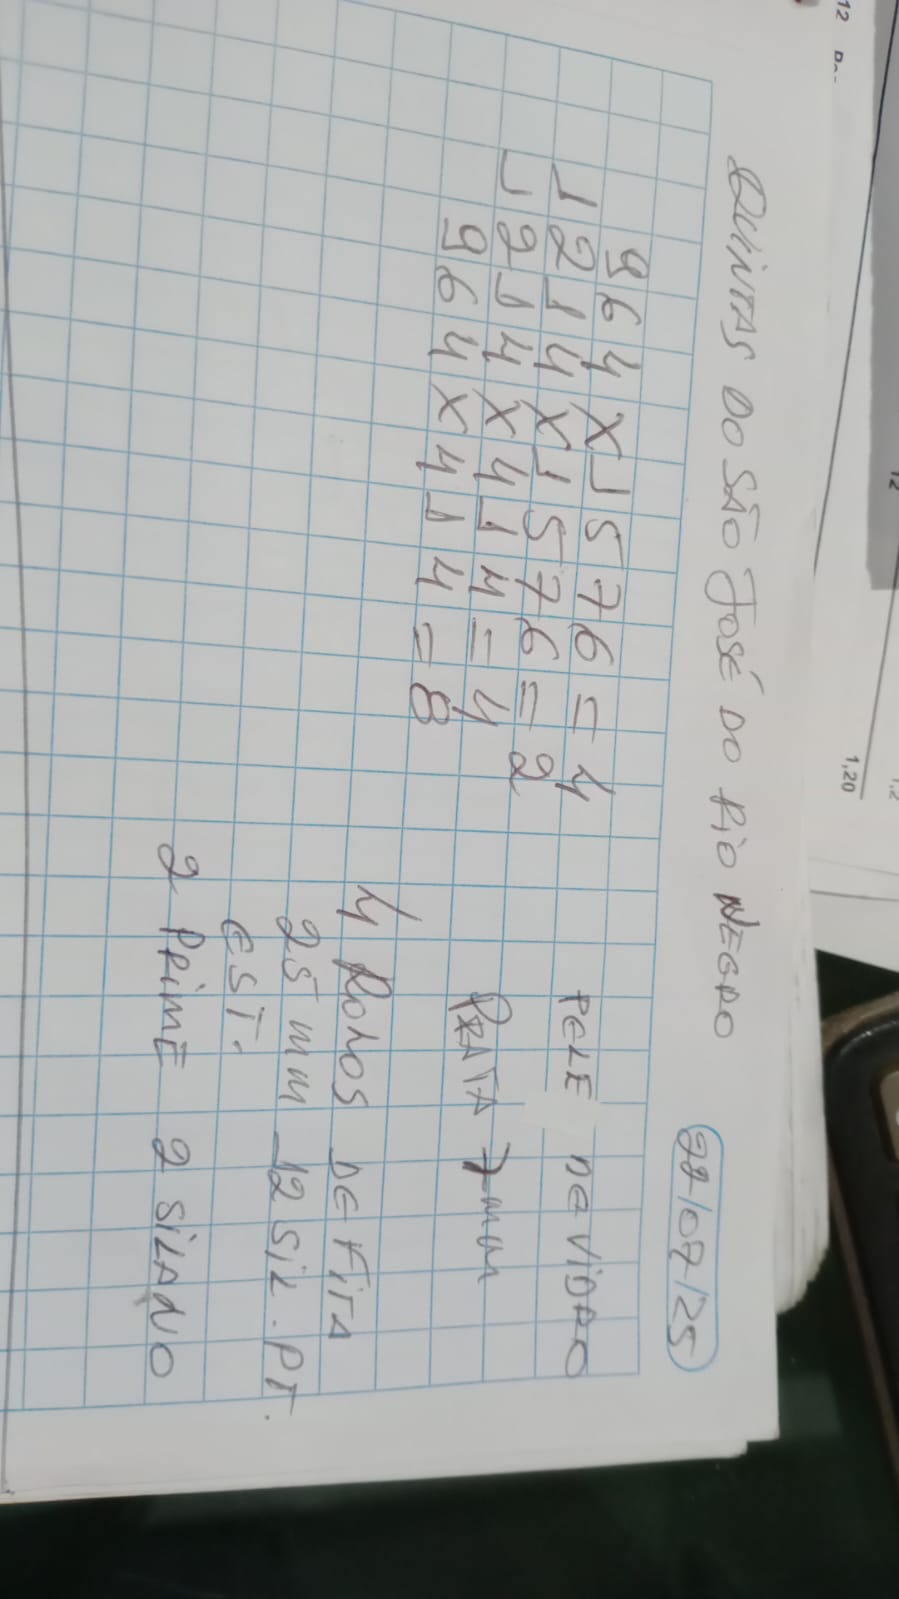 QUINTAS DO SÃO JOSÉ DO RIO NEGRO
22/07/25
964 X 1576 = 4
1214 X 1576 = 2
1214 X 414 = 4
964 X 414 = 8
PELE DE VIDRO
PRATA 7mm
4 ROLOS DE FITA
25 mm 12 SIL. PT.
EST.
2 PRIME 2 SILANO
12
1,20
12
1,2